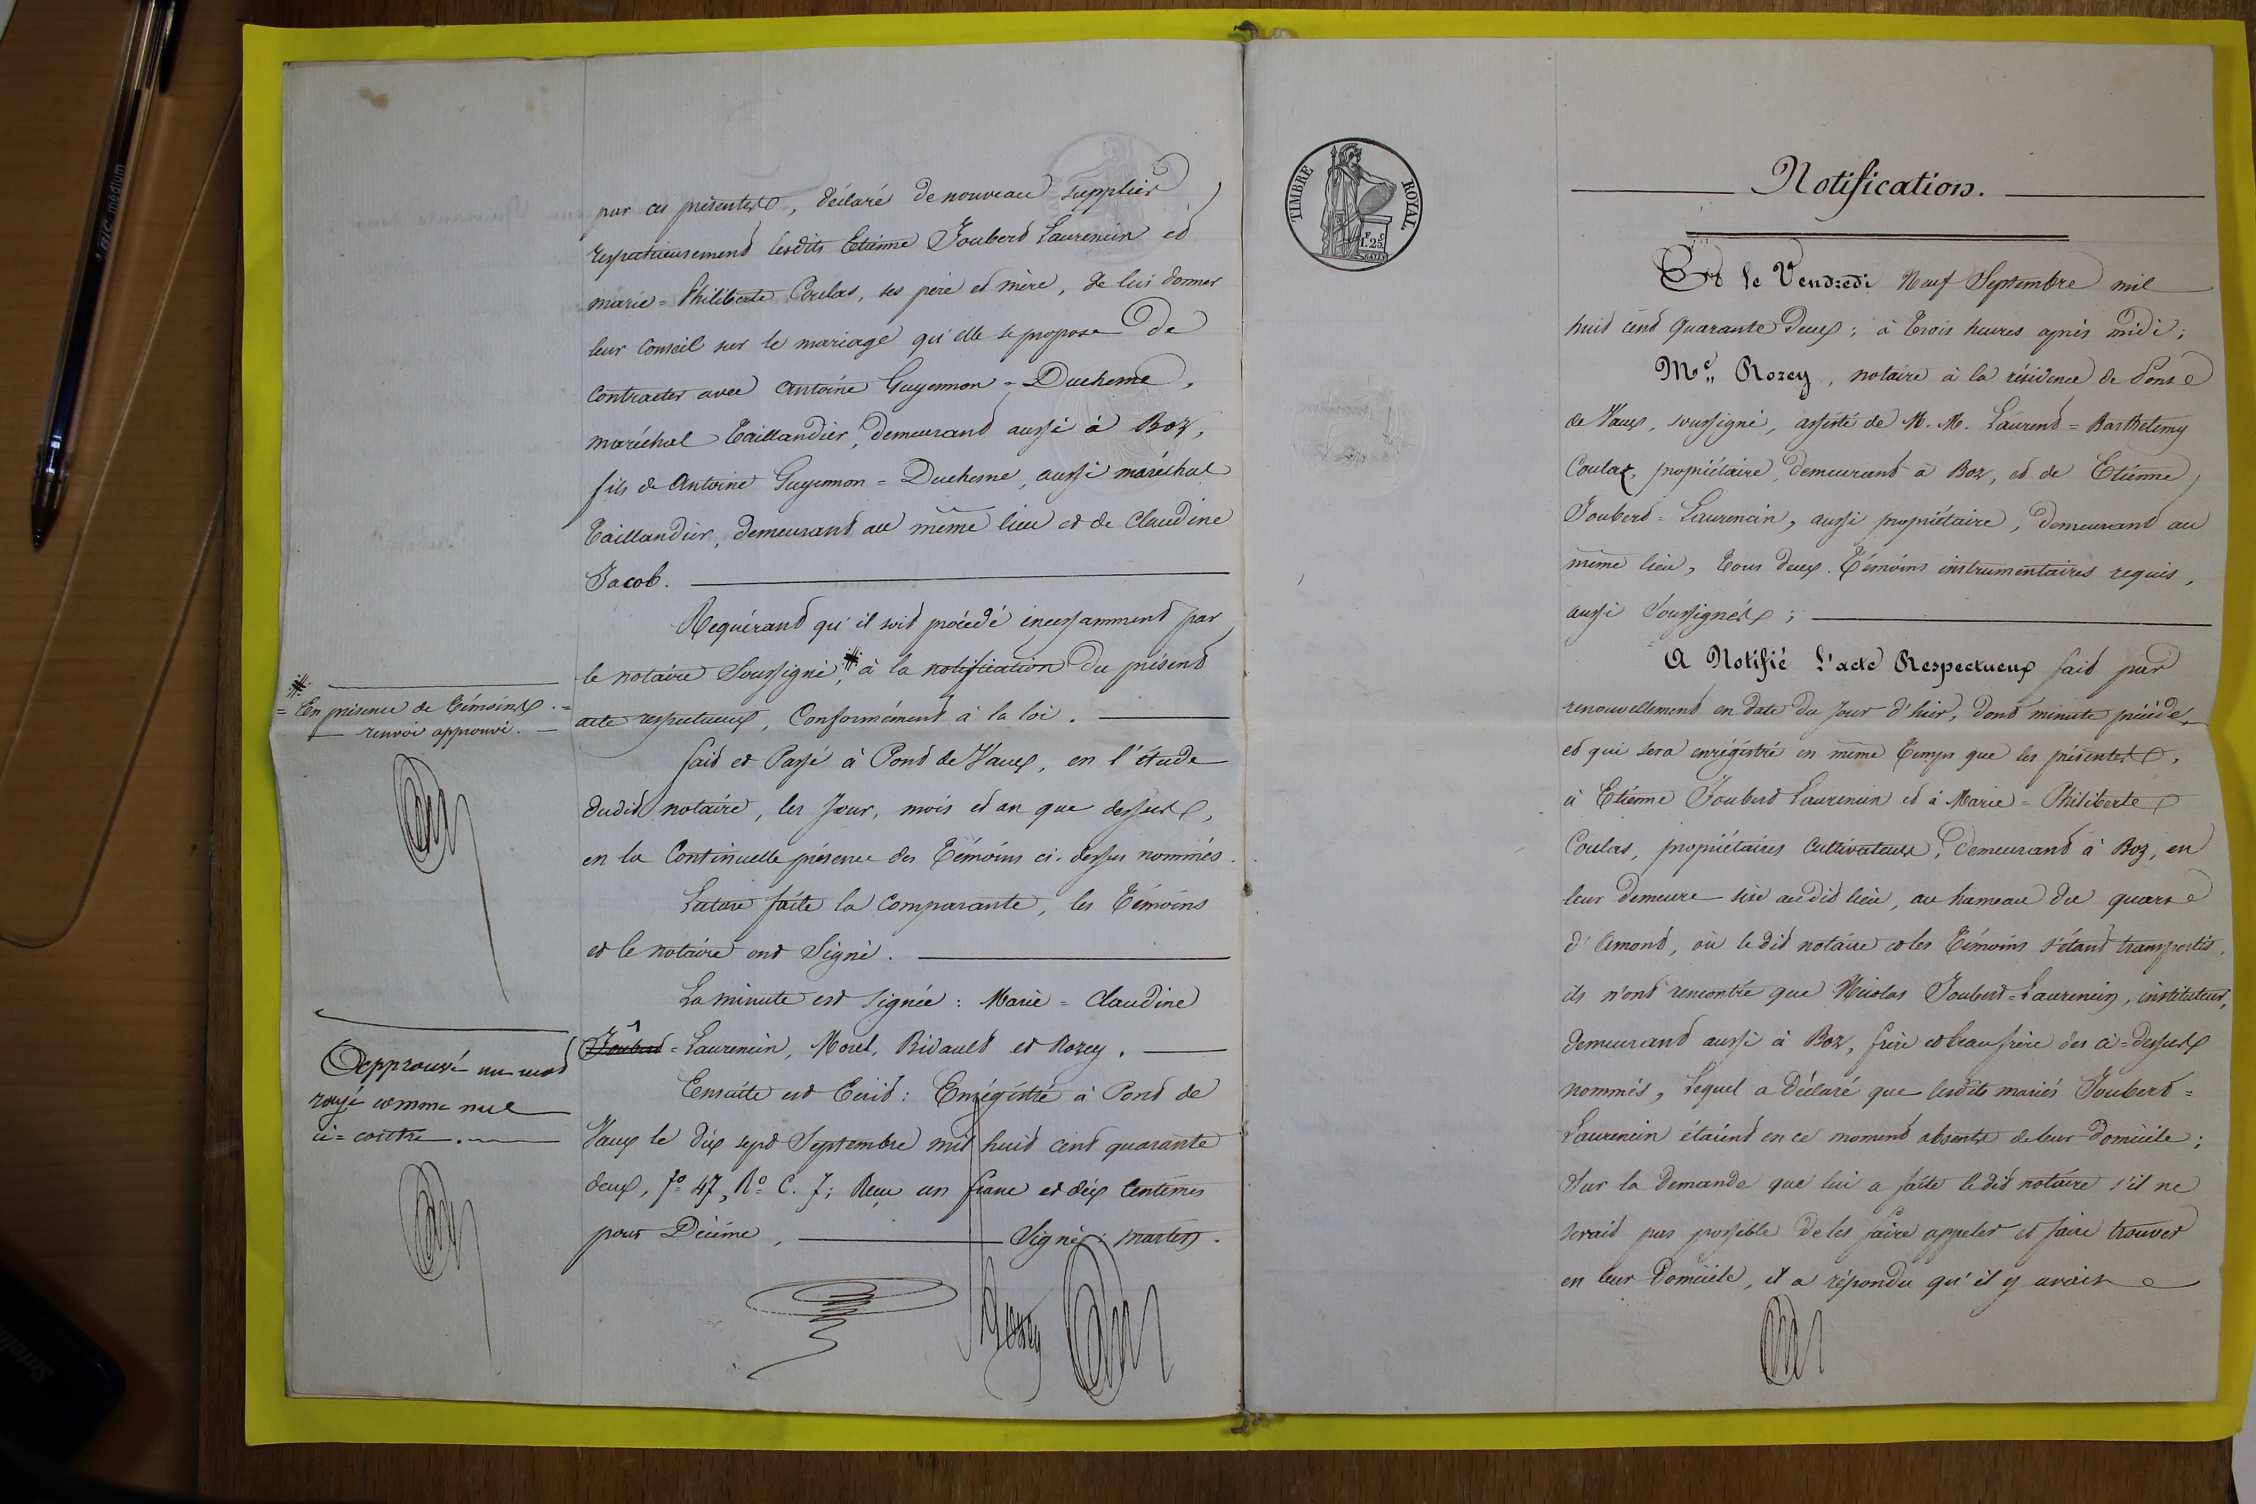 par ces présentes, déclaré de nouveau supplier
respectueusement lesdits Etienne Joubert Laurencin et
marie = Philiberte Coulas, ses père et mère, de lui donner
leur Conseil sur le mariage qu'elle se propose de
Contracter avec Antoine Guyennon = Duchesne,
maréchal Taillandier, demeurant aussi à Boz,
fils de Antoine Guyennon = Duchesne, aussi maréchal
Taillandier, demeurant au même lieu et de Claudine
Jacob.
Requérant qu'il soit procédé incessamment par
le notaire Soussigné, # à la notification du présent
acte respectueux, Conformément à la loi.
fait et Passé à Pont de Vaux, en l'étude
dudit notaire, les Jour, mois et an que dessus,
en la Continuelle présence des Témoins ci-dessus nommés.
Lecture faite la Comparante, les Témoins
et le notaire ont Signé.
La minute est signée : Marie = Claudine
Joubert = Laurencin, Morel, Rivault et Rozey.
Ensuite est Ecrit : Enrégistré à Pont de
Vaux le dix sept Septembre mil huit cent quarante
deux, fo 47, Ro C. 7; Reçu un franc et dix Centimes
pour Décime, Signé : martin.
Rozey
#
= En présence de témoins. =
renvoi approuvé.
Approuvé un mot
rayé comme nul
ci = contre.
TIMBRE ROYAL
1F 25C
Notification.
Et le Vendredi Neuf Septembre mil
huit cent Quarante Deux; à Trois heures après midi;
Me Rozey, notaire à la résidence de Pont
de Vaux, soussigné, assisté de M. M. Laurent = Barthelemy
Coulas, propriétaire, demeurant à Boz, et de Etienne
Joubert = Laurencin, aussi propriétaire, demeurant au
même lieu, tous deux Témoins instrumentaires requis,
aussi Soussignés;
A Notifié L'acte Respectueux fait par
renouvellement en date du Jour d'hier, dont minute précède,
et qui sera enrégistré en même temps que les présentes,
à Etienne Joubert Laurencin et à Marie = Philiberte
Coulas, propriétaires Cultivateurs, demeurant à Boz, en
leur demeure sise audit lieu, au hameau du quart
d'Amont, où le dit notaire et les Témoins s'étant transportés,
ils n'ont rencontré que Nicolas Joubert = Laurencin, instituteur,
demeurant aussi à Boz, frère et beau frère des ci = dessus
nommés, Lequel a Déclaré que lesdits mariés Joubert =
Laurencin étaient en ce moment absents de leur domicile;
Sur la demande que lui a faite ledit notaire s'il ne
serait pas possible de les faire appeler et faire trouver
en leur Domicile, il a répondu qu'il y avait